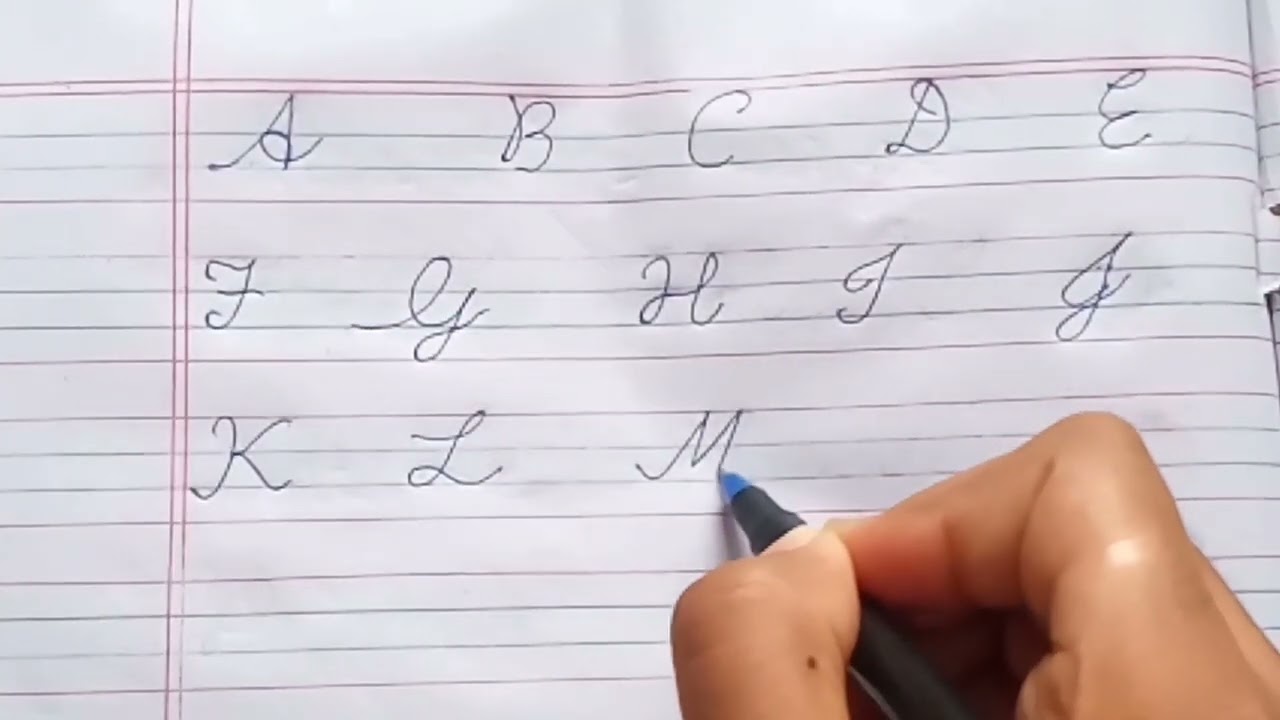 A B C D E
F G H I J
K L M